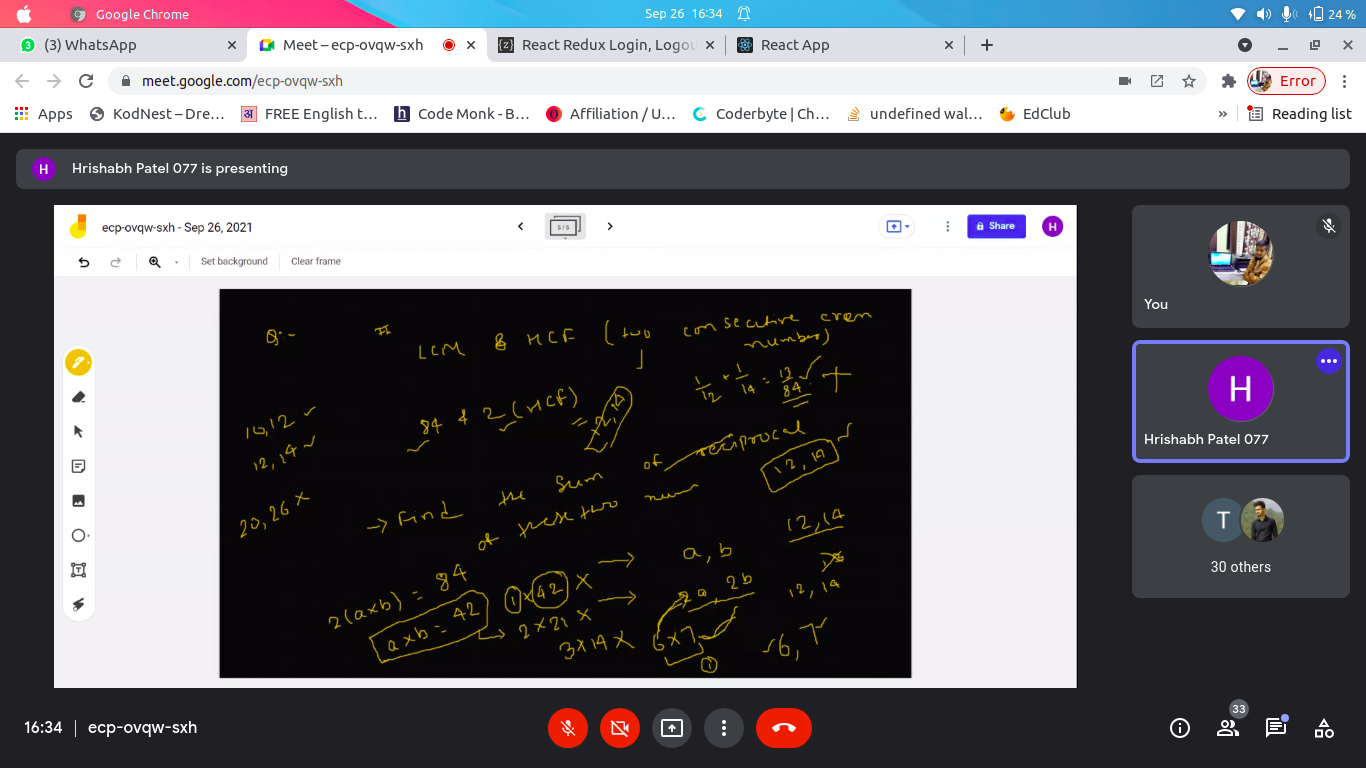 Google Chrome
Sep 26 16:34
24 %
(3) WhatsApp
Meet – ecp-ovqw-sxh
React Redux Login, Logou
React App
meet.google.com/ecp-ovqw-sxh
Error
Apps
KodNest – Dre...
FREE English t...
Code Monk - B...
Affiliation / U...
Coderbyte | Ch...
undefined wal...
EdClub
»
Reading list
H
Hrishabh Patel 077 is presenting
ecp-ovqw-sxh - Sep 26, 2021
5 / 5
Share
H
Set background
Clear frame
Q:-
LCM & HCF (two consecutive even
number)
1/12 + 1/14 = 13/84
10,12 ✓
84 & 2 (HCF)
12,14 ✓
→ Find the sum of reciprocal
of these two num
12, 14
20,26 ×
12,14
2(a×b) = 84
a×b = 42
1×42 ×
→ a, b
2×21 ×
→ 2a, 2b
12, 14
3×14 ×
6×7
1
6, 7
You
H
Hrishabh Patel 077
T
30 others
16:34
ecp-ovqw-sxh
33